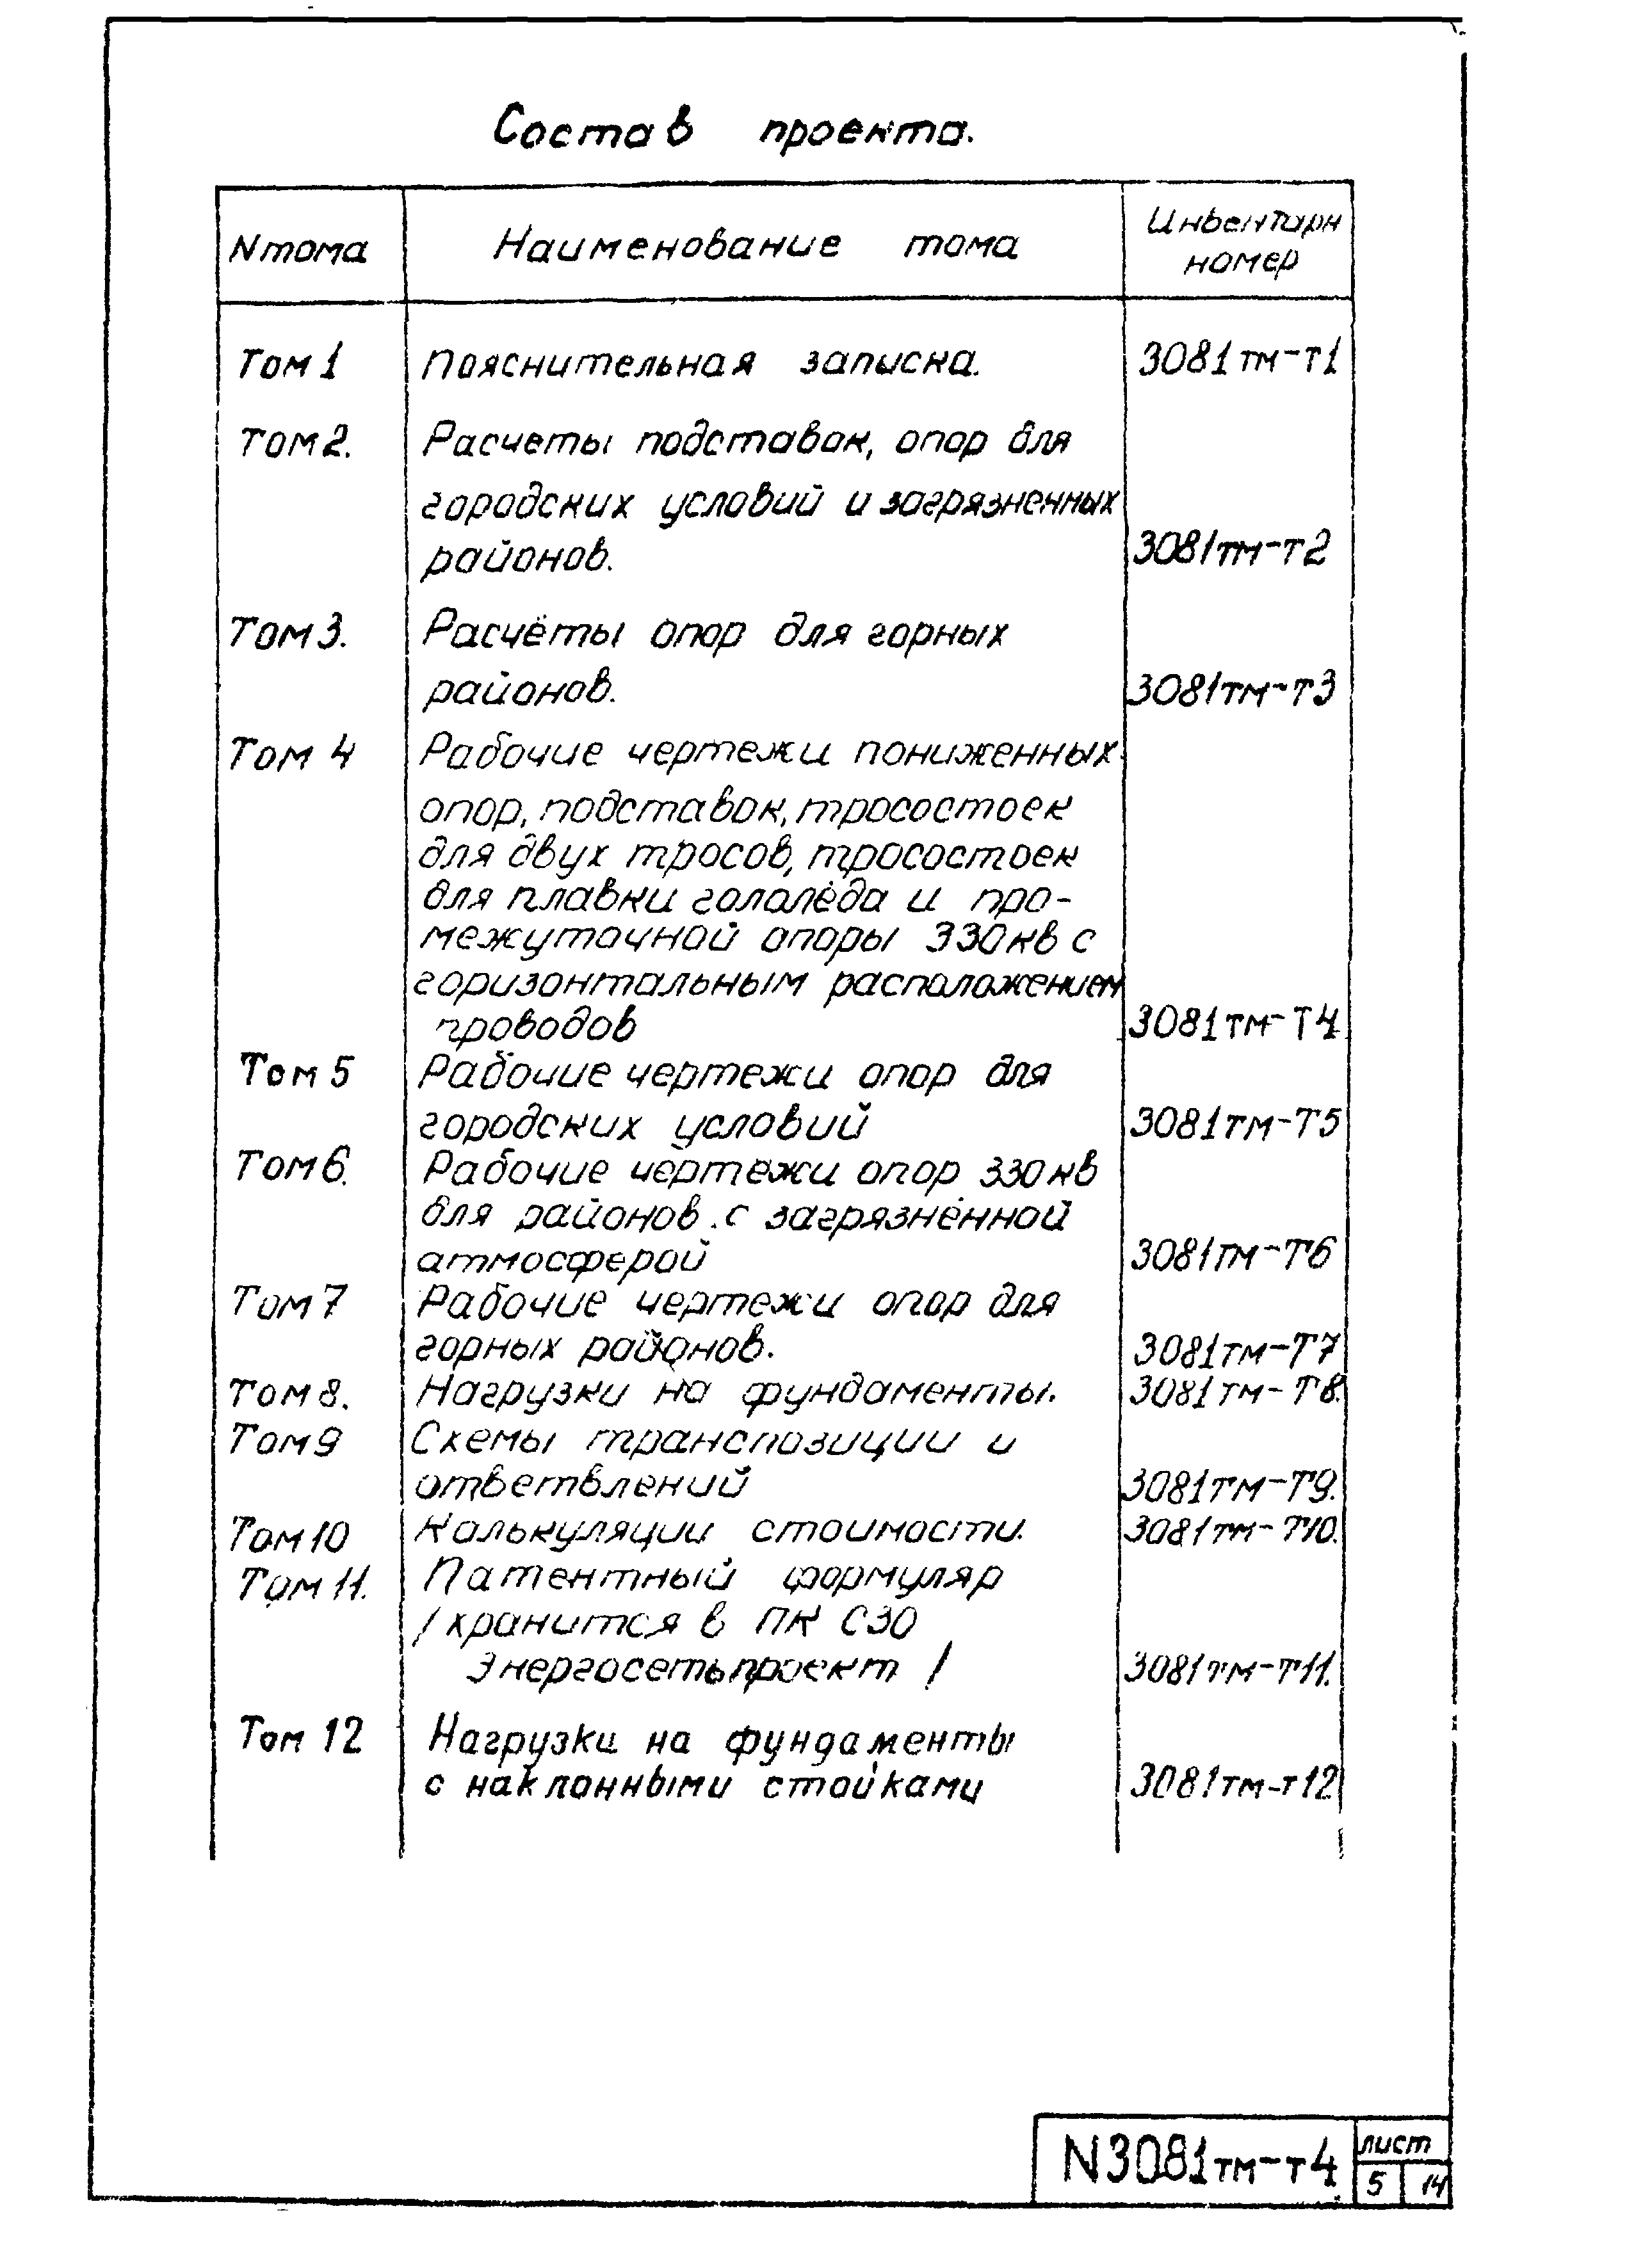 Состав проекта.
N тома
Наименование тома
Инвентарн
номер
Том 1 Пояснительная записка. 3081тм-т1
Том 2. Расчеты подставок, опор для
городских условий и загрязненных
районов. 3081тм-т2
Том 3. Расчёты опор для горных
районов. 3081тм-т3
Том 4 Рабочие чертежи пониженных
опор, подставок, тросостоек
для двух тросов, тросостоек
для плавки гололёда и про-
межуточной опоры 330кв с
горизонтальным расположением
проводов 3081тм-Т4
Том 5 Рабочие чертежи опор для
городских условий 3081тм-Т5
Том 6. Рабочие чертежи опор 330кв
для районов с загрязнённой
атмосферой 3081тм-Т6
Том 7 Рабочие чертежи опор для
горных районов. 3081тм-Т7
Том 8. Нагрузки на фундаменты. 3081тм-Т8.
Том 9 Схемы транспозиции и
ответвлений 3081тм-Т9.
Том 10 Калькуляции стоимости. 3081тм-Т10.
Том 11. Патентный формуляр
/хранится в ПК СЗО
Энергосетьпроект/ 3081тм-Т11.
Том 12 Нагрузки на фундаменты
с наклонными стойками 3081тм-т12
N3081тм-т4
лист
5 14